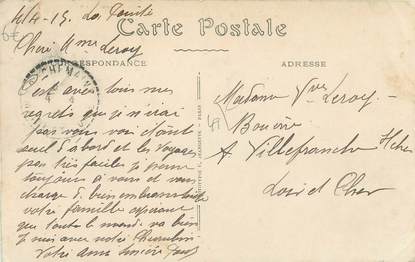 4/4-15. La
Carte Postale
Chère Mme Leroy
CORRESPONDANCE
ADRESSE
C'est avec tous mes
regrets que je n'irai
pas vous voir étant
seul d'abord et les voyages
pas très faciles je pense
toujours à vous et vous
charge de bien embrasser toute
votre famille espérant
que tout le monde va bien
je suis avec notre
Votre amie sincère
Madame Vve Leroy
à Villefranche s/Cher
Loir et Cher